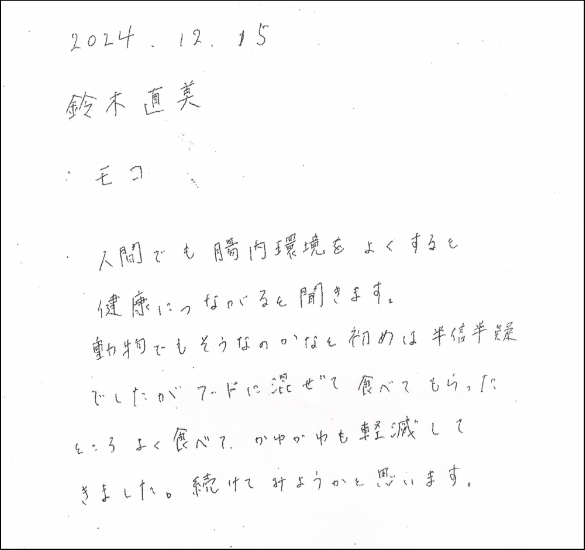 2024.12.15
鈴木直美
・モコ
・人間でも腸内環境をよくすると
健康につながると聞きます。
動物でもそうなのかなと初めは半信半疑
でしたがフードに混ぜて食べてもらった
ところよく食べて、かゆがわも軽減して
きました。続けてみようかと思います。